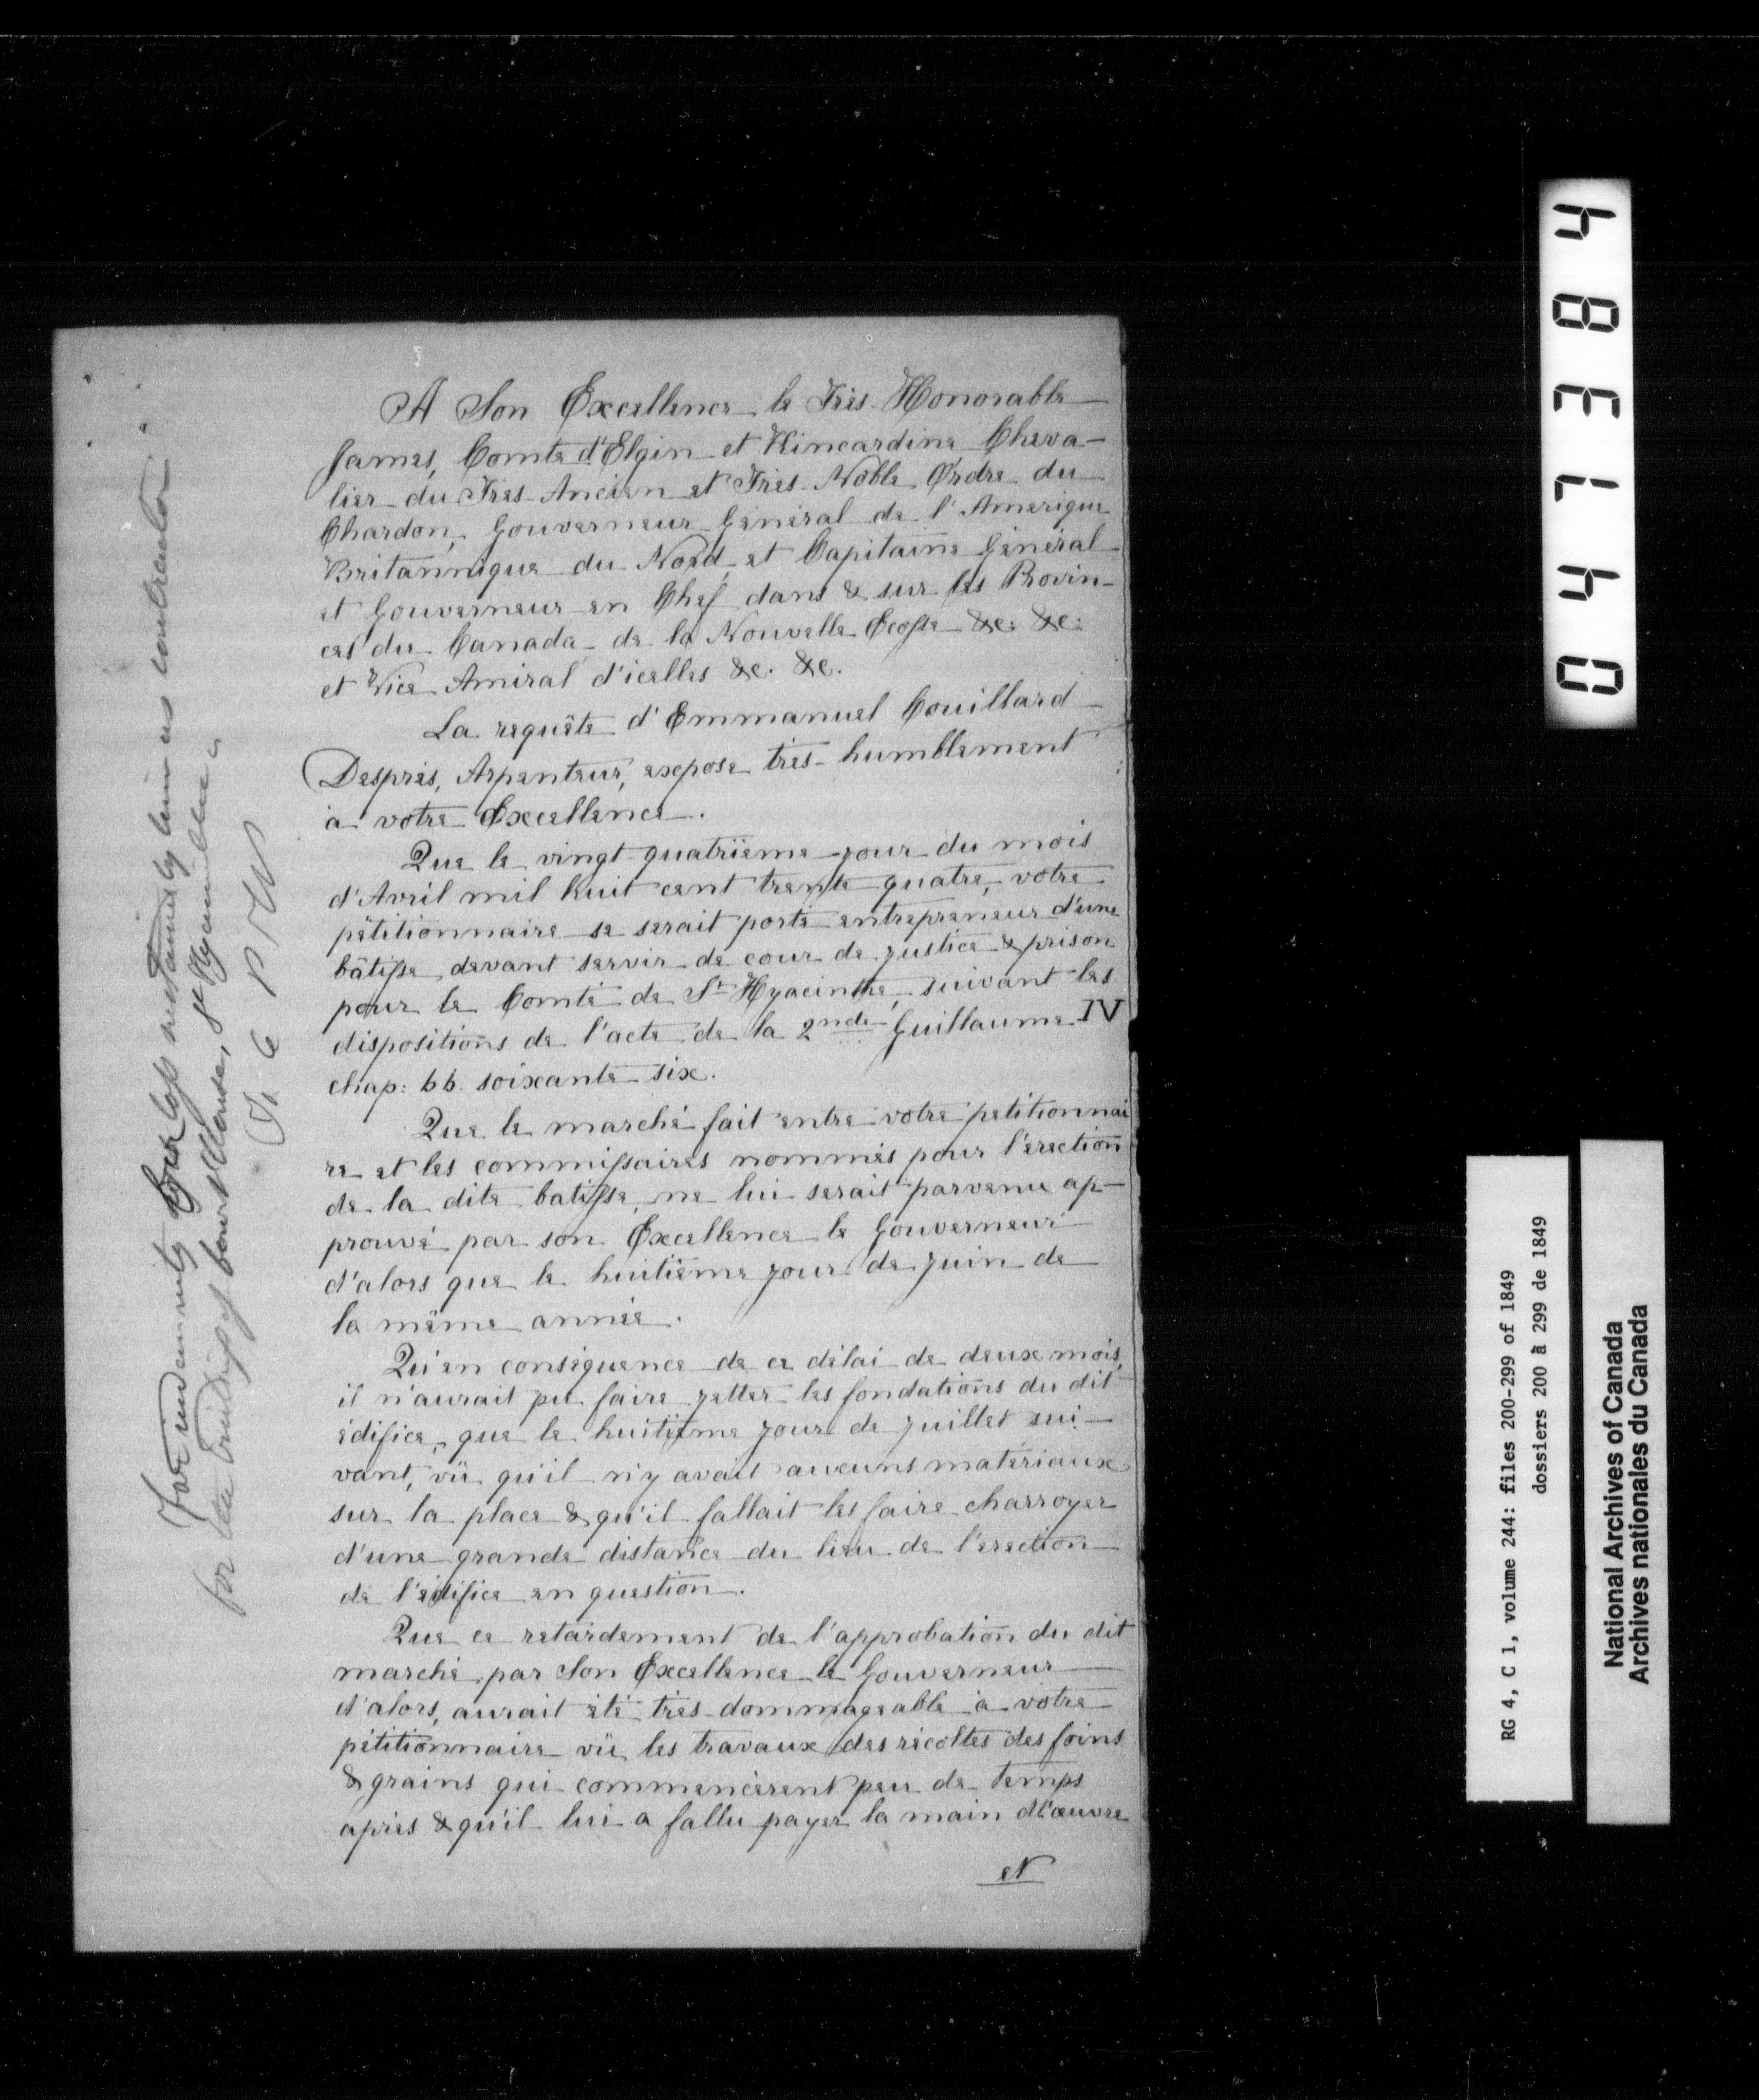 A Son Excellence le Très-Honorable
James, Comte d'Elgin et Kincardine, Cheva-
lier du Très-Ancien et Très-Noble Ordre du
Chardon, Gouverneur Général de l'Amerique
Britannique du Nord, et Capitaine Général
et Gouverneur en Chef dans & sur les Provin-
ces du Canada, de la Nouvelle Ecosse &c: &c:
et Vice Amiral d'icelles &c. &c.
La requête d'Emmanuel Couillard
Després, Arpenteur, expose très-humblement
à votre Excellence.
Que le vingt-quatrième jour du mois
d'Avril mil huit cent trente quatre, votre
pétitionnaire se serait porté entrepreneur d'une
bâtisse devant servir de cour de justice & prison
pour le Comté de St Hyacinthe, suivant les
dispositions de l'acte de la 2nde Guillaume IV
chap: 66. soixante six.
Que le marché fait entre votre petitionnai
re et les commissaires nommés pour l'érection
de la dite batisse, ne lui serait parvenu ap-
prouvé par son Excellence le Gouverneur
d'alors que le huitième jour de juin de
la même année.
Qu'en conséquence de ce délai de deux mois,
il n'aurait pu faire jetter les fondations du dit
édifice, que le huitième jour de juillet sui-
vant, vû qu'il n'y avait aucuns matériaux
sur la place & qu'il fallait les faire charroyer
d'une grande distance du lieu de l'érection
de l'édifice en question.
Que ce retardement de l'approbation du dit
marché par Son Excellence le Gouverneur
d'alors, aurait été très-dommageable à votre
pétitionnaire vû les travaux des récoltes des foins
& grains qui commencèrent peu de temps
après & qu'il lui a fallu payer la main d'œuvre
et
For indemnity for loss sustained by him as contractor
for the building of Court House, St Hyacinthe
04 1384
RG 4, C 1, volume 244: files 200-299 of 1849
dossiers 200 à 299 de 1849
National Archives of Canada
Archives nationales du Canada